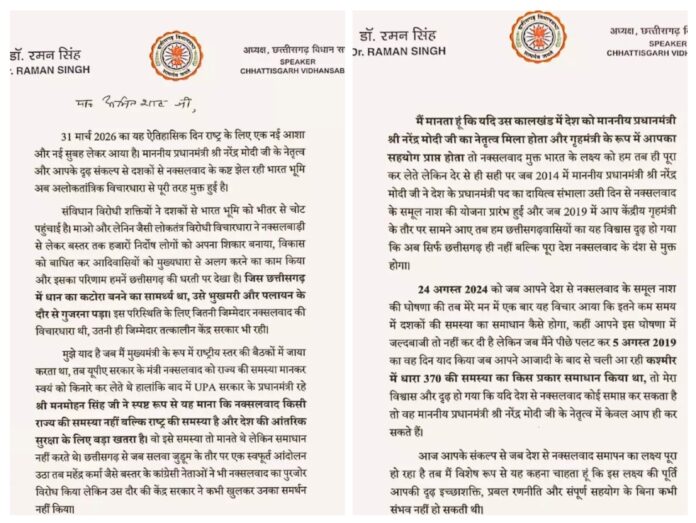 डॉ. रमन सिंह
Dr. RAMAN SINGH
अध्यक्ष, छत्तीसगढ़ विधान स
SPEAKER
CHHATTISGARH VIDHANSAB
अमित शाह जी,
31 मार्च 2026 का यह ऐतिहासिक दिन राष्ट्र के लिए एक नई आशा
और नई सुबह लेकर आया है। माननीय प्रधानमंत्री श्री नरेंद्र मोदी जी के नेतृत्व
और आपके दृढ़ संकल्प से दशकों से नक्सलवाद के कष्ट झेल रही भारत भूमि
अब अलोकतांत्रिक विचारधारा से पूरी तरह मुक्त हुई है।
संविधान विरोधी शक्तियों ने दशकों से भारत भूमि को भीतर से चोट
पहुंचाई है। माओ और लेनिन जैसी लोकतंत्र विरोधी विचारधारा ने नक्सलबाड़ी
से लेकर बस्तर तक हजारों निर्दोष लोगों को अपना शिकार बनाया, विकास
को बाधित कर आदिवासियों को मुख्यधारा से अलग करने का काम किया
और इसका परिणाम हमनें छत्तीसगढ़ की धरती पर देखा है। जिस छत्तीसगढ़
में धान का कटोरा बनने का सामर्थ्य था, उसे भुखमरी और पलायन के
दौर से गुजरना पड़ा। इस परिस्थिति के लिए जितनी जिम्मेदार नक्सलवाद की
विचारधारा थी, उतनी ही जिम्मेदार तत्कालीन केंद्र सरकार भी रही।
मुझे याद है जब मैं मुख्यमंत्री के रूप में राष्ट्रीय स्तर की बैठकों में जाया
करता था, तब यूपीए सरकार के मंत्री नक्सलवाद को राज्य की समस्या मानकर
स्वयं को किनारे कर लेते थे हालांकि बाद में UPA सरकार के प्रधानमंत्री रहे
श्री मनमोहन सिंह जी ने स्पष्ट रूप से यह माना कि नक्सलवाद किसी
राज्य की समस्या नहीं बल्कि राष्ट्र की समस्या है और देश की आंतरिक
सुरक्षा के लिए बड़ा खतरा है। वो इसे समस्या तो मानते थे लेकिन समाधान
नहीं करते थे। छत्तीसगढ़ से जब सलवा जुडूम के तौर पर एक स्वफूर्त आंदोलन
उठा तब महेंद्र कर्मा जैसे बस्तर के कांग्रेसी नेताओं ने भी नक्सलवाद का पुरजोर
विरोध किया लेकिन उस दौर की केंद्र सरकार ने कभी खुलकर उनका समर्थन
नहीं किया।
डॉ. रमन सिंह
Dr. RAMAN SINGH
अध्यक्ष, छत्तीसगढ़ विधान
SPEAKER
CHHATTISGARH VIDHAN
मैं मानता हूं कि यदि उस कालखंड में देश को माननीय प्रधानमंत्री
श्री नरेंद्र मोदी जी का नेतृत्व मिला होता और गृहमंत्री के रूप में आपका
सहयोग प्राप्त होता तो नक्सलवाद मुक्त भारत के लक्ष्य को हम तब ही पूरा
कर लेते लेकिन देर से ही सही पर जब 2014 में माननीय प्रधानमंत्री श्री नरेंद्र
मोदी जी ने देश के प्रधानमंत्री पद का दायित्व संभाला उसी दिन से नक्सलवाद
के समूल नाश की योजना प्रारंभ हुई और जब 2019 में आप केंद्रीय गृहमंत्री
के तौर पर सामने आए तब हम छत्तीसगढ़वासियों का यह विश्वास दृढ़ हो गया
कि अब सिर्फ छत्तीसगढ़ ही नहीं बल्कि पूरा देश नक्सलवाद के दंश से मुक्त
होगा।
24 अगस्त 2024 को जब आपने देश से नक्सलवाद के समूल नाश
की घोषणा की तब मेरे मन में एक बार यह विचार आया कि इतने कम समय
में दशकों की समस्या का समाधान कैसे होगा, कहीं आपने इस घोषणा में
जल्दबाजी तो नहीं कर दी है लेकिन जब मैंने पीछे पलट कर 5 अगस्त 2019
का वह दिन याद किया जब आपने आजादी के बाद से चली आ रही कश्मीर
में धारा 370 की समस्या का किस प्रकार समाधान किया था, तो मेरा
विश्वास और दृढ़ हो गया कि यदि देश से नक्सलवाद कोई समाप्त कर सकता है
तो वह माननीय प्रधानमंत्री श्री नरेंद्र मोदी जी के नेतृत्व में केवल आप ही कर
सकते हैं।
आज आपके संकल्प से जब देश से नक्सलवाद समापन का लक्ष्य पूरा
हो रहा है तब मैं विशेष रूप से यह कहना चाहता हूं कि इस लक्ष्य की पूर्ति
आपकी दृढ़ इच्छाशक्ति, प्रबल रणनीति और संपूर्ण सहयोग के बिना कभी
संभव नहीं हो सकती थी।